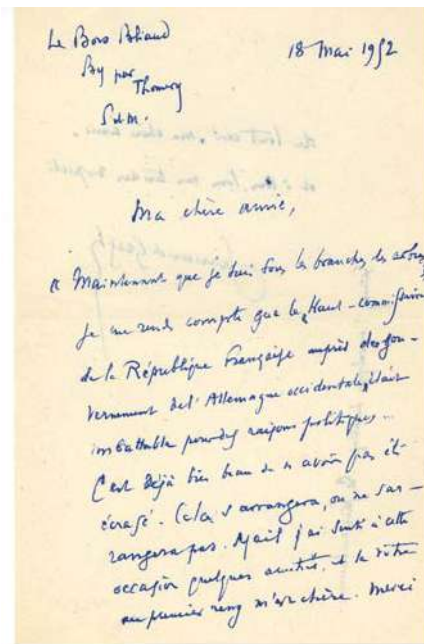 Le Bois Briaud
By par
Thomery
S & M.
18 Mai 1952
Ma chère amie,
« Maintenant que je suis sous les branches des arbres,
je me rends compte que le Haut-commissaire
de la République Française auprès du gou-
vernement de l'Allemagne occidentale, était
imbattable pour des raisons politiques...
C'est déjà bien beau de n'avoir pas été
écrasé. Cela s'arrangera, ou ne s'ar-
rangera pas. Mais j'ai senti à cette
occasion quelques amitiés, et la vôtre
au premier rang m'est chère. Merci